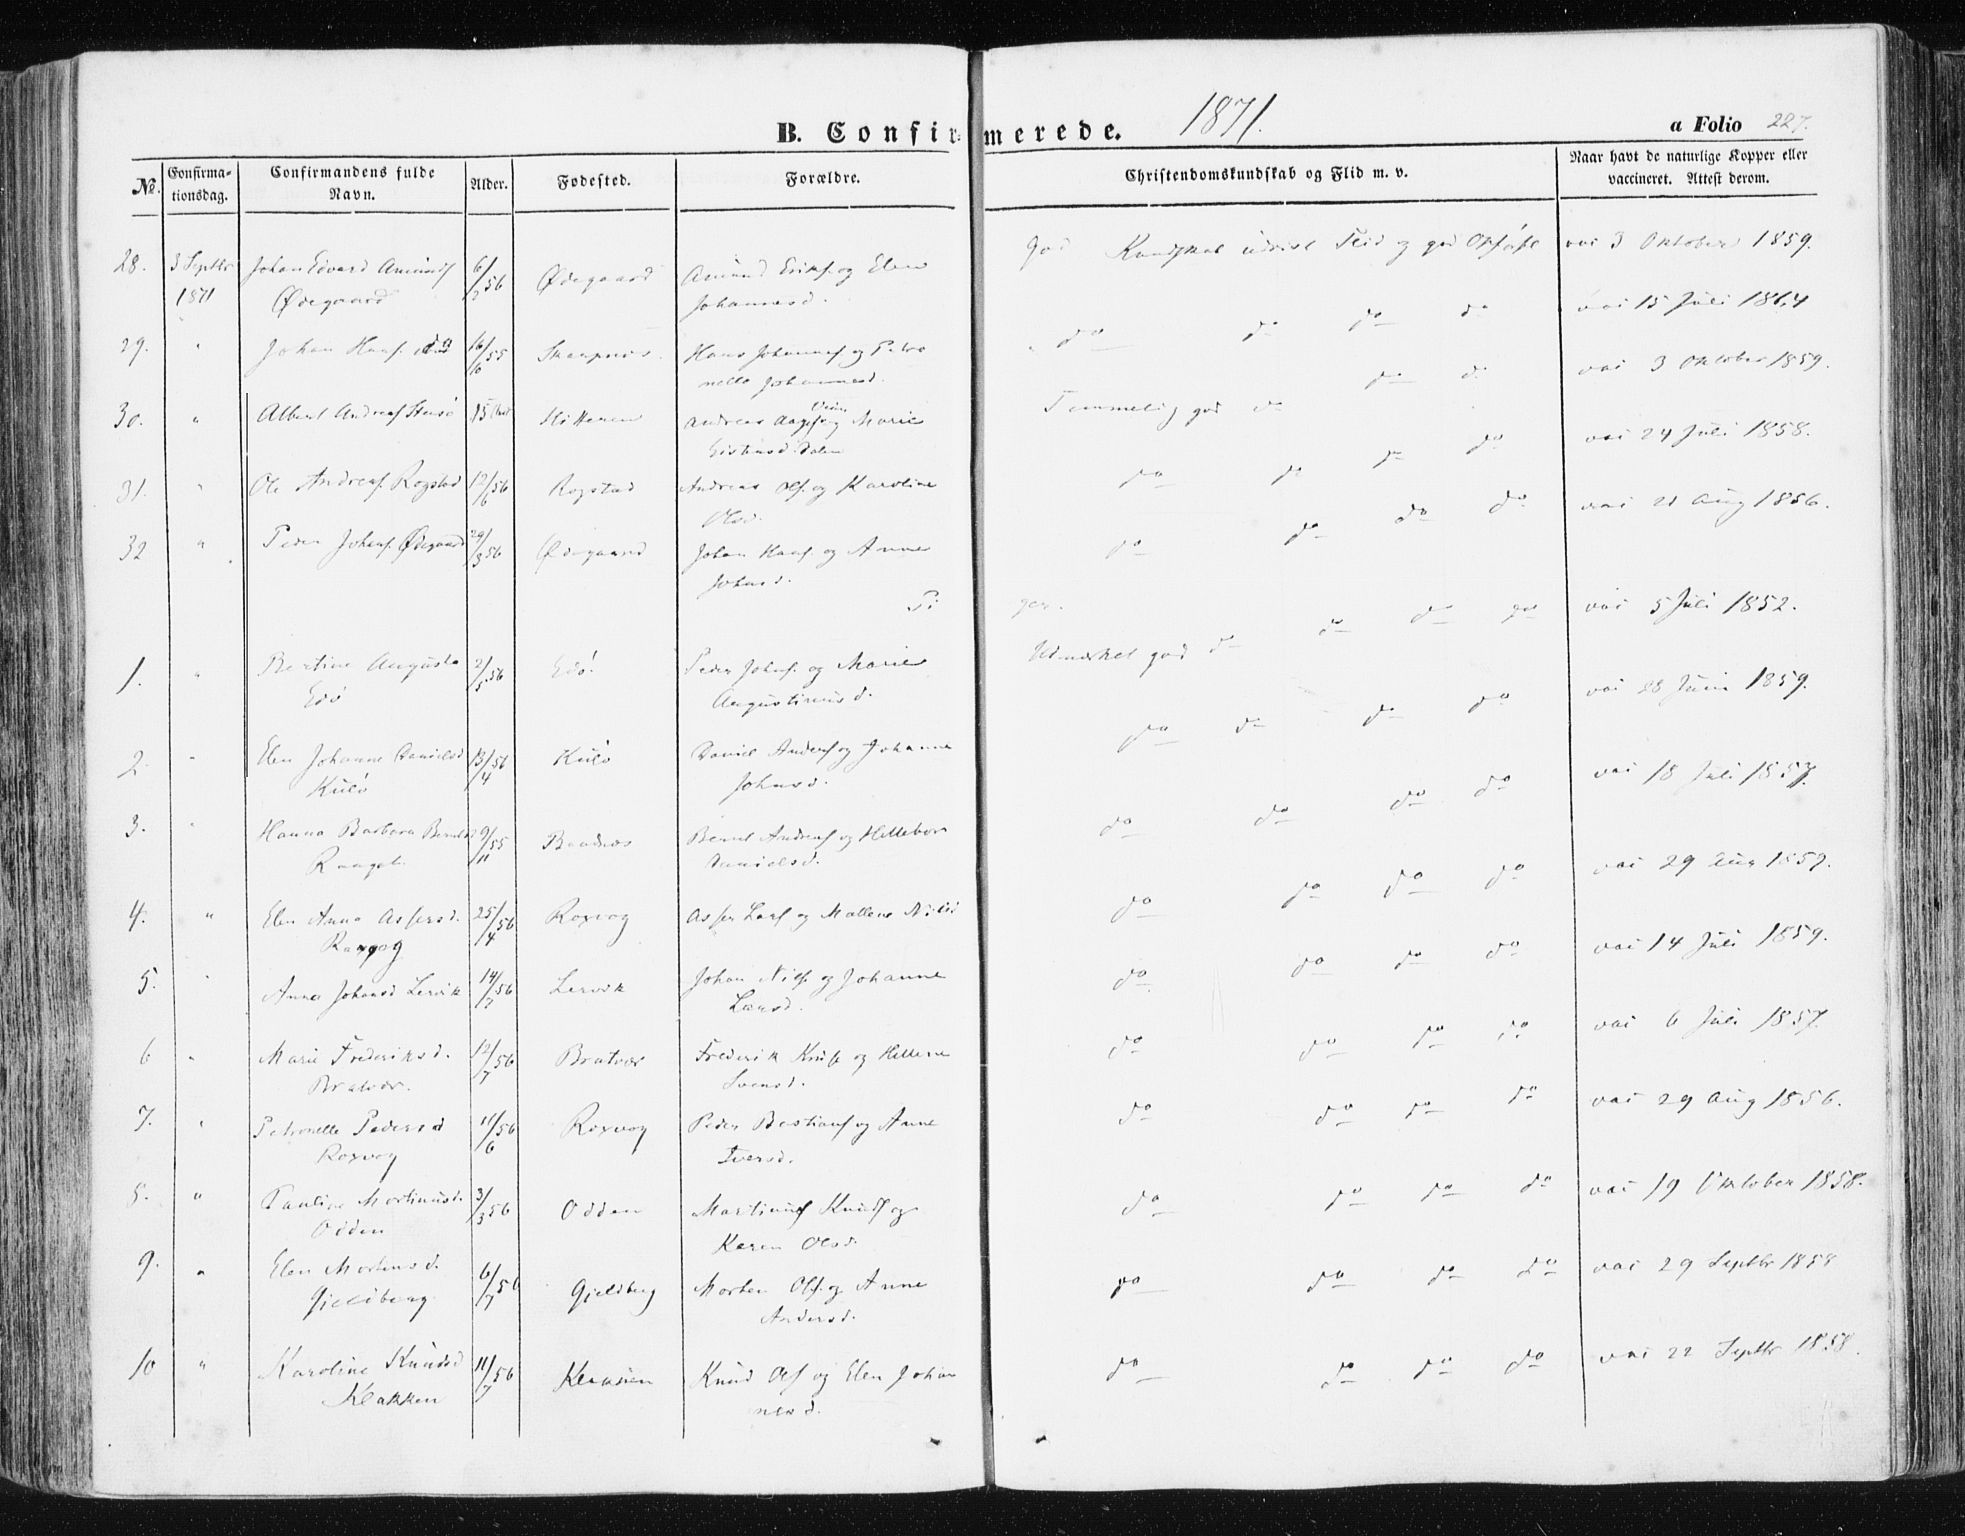 B. Confirmerede. 1871. a Folio 227.
No. Confirmationsdag. Confirmandens fulde Navn. Alder. Fødested. Forældre. Christendomskundskab og Flid m. v. Naar havt de naturlige Kopper eller vaccineret. Attest derom.
28. 3 Septbr Johan Edvard Amunds 6/2 56 Ødegaard Amund Eriks. og Elen god Kundskab udvist Flid og god Opførs vac 3 Oktober 1859.
1871 Ødegaard Johannesd.
29. " Johan Hans. 16/10 55 Skarpnes Hans Johannes og Petro do do do do vac 15 Juli 1864
nelle Johannesd.
30. " Albert Andreas 15 Hitteren Andreas og Marie Temmelig god do do do vac 3 Oktober 1859.
31. " Ole Andreas. Rogstad 12/6 56 Rogstad Andreas Ols. og Karoline do do do do vac 24 Juli 1858.
Olsd.
32 " Peder Johans. Ødegaard 29/3 56 Ødegaard Johan Hans. og Anne do do do do vac 21 Aug 1856.
Johnsd.
Pi ger.
1. " Bertine Augusta 2/5 56 Edø. Peder Johns. og Marie Udmærket god do do do do vac 5 Juli 1852.
Edø Augustinusd.
2. " Elen Johanne Danielsd 13/4 56 Kulø Daniel Anders og Johanne do do do do vac 28 Juni 1859.
Kulø Johnsd.
3. " Hanna Barbara Berntsd 29/11 55 Bernt Andreas og Hellebor do do do do vac 18 Juli 1857.
Danielsd.
4. " Elen Anna Assersd. 25/4 56 Roxvog Asser Lars og Mallene Nilsd do do do do vac 29 Aug 1859.
Roxvog
5. " Anna Johansd Lervik 14/7 56 Lervik Johan Nils og Johanne do do do do vac 14 Juli 1859.
Larsd.
6 " Marie Frederiksd. 12/7 56 Bratvær Frederik Knuts og Hellene do do do do vac 6 Juli 1857.
Bratvær. Svensd.
7. " Petronelle Pedersd 11/6 56 Roxvog Peder Bastians og Anne do do do do vac 29 Aug 1856.
Roxvog Iversd.
8. " Pauline Martinusd. 3/3 56 Odden Martinus Knuds og do do do do vac 19 Oktober 1858.
Odden Karen Olsd.
9. " Elen Mortensd. 6/7 56 Gjeldberg Morten Ols. og Anne do do do do vac 29 Septbr 1858
Gjeldberg Andersd.
10 " Karoline Knudsd 11/7 56 Knud Ols og Elen Johan do do do do vac 22 Septbr 1858.
Klakken nesd.